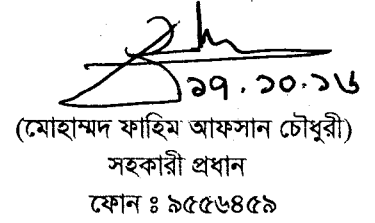 ১৭.১০.১৬
(মোহাম্মদ ফাহিম আফসান চৌধুরী)
সহকারী প্রধান
ফোন ঃ ৯৫৫৬৪৫৯